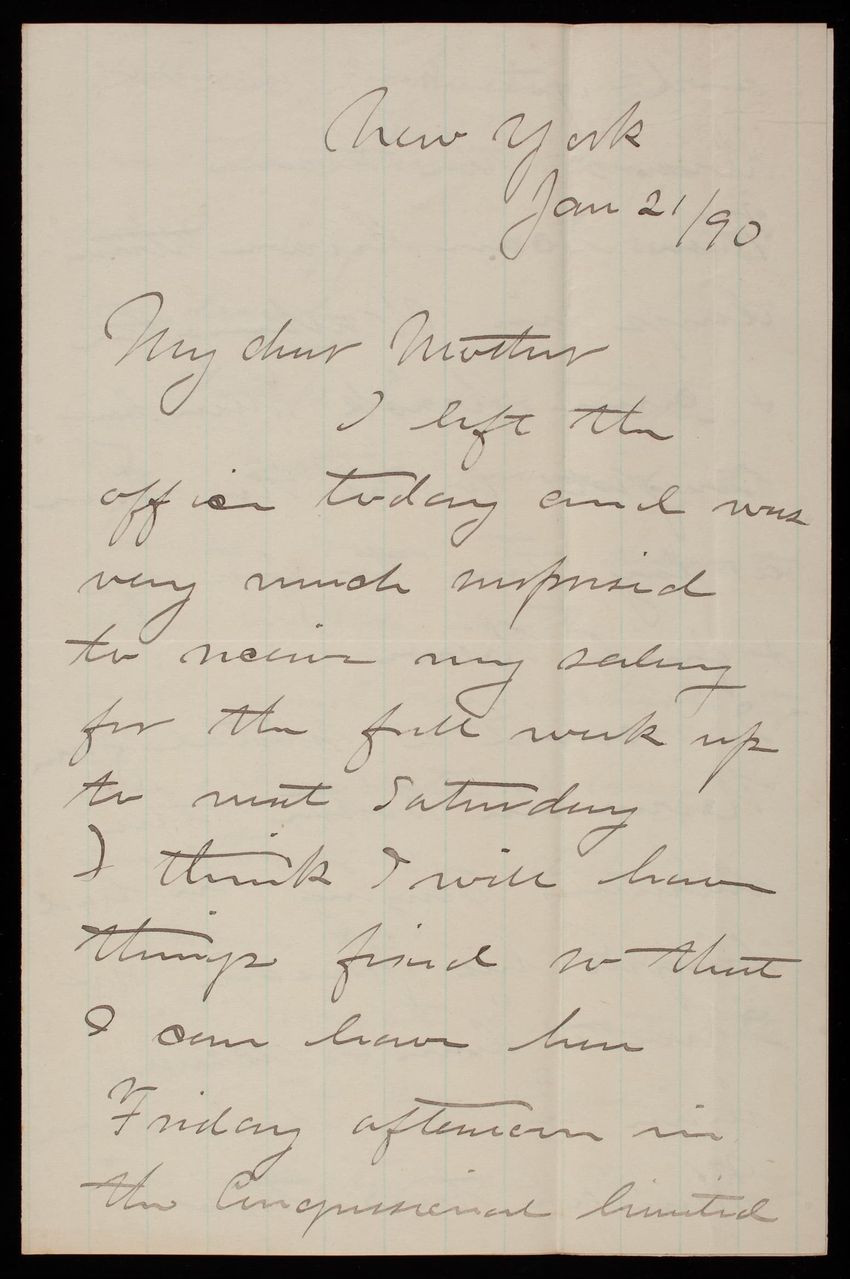 New York
Jan 21/90
My dear Mother
I left the
office today and was
very much surprised
to receive my salary
for the full week up
to next Saturday
I think I will have
things fixed so that
I can leave here
Friday afternoon in
the Congressional limited